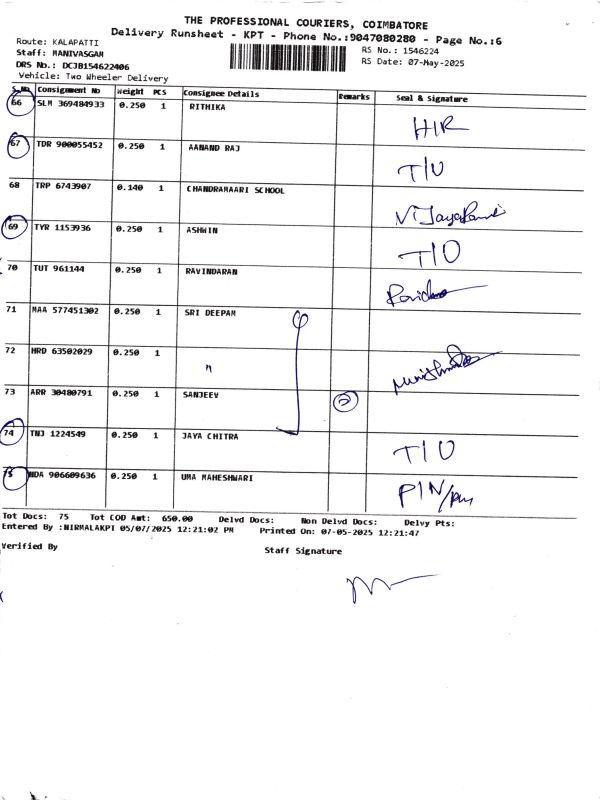 THE PROFESSIONAL COURIERS, COIMBATORE
Delivery Runsheet - KPT - Phone No.:9047080280 - Page No.:6
Route: KALAPATTI
RS No.: 1546224
Staff: MANIVASGAM
RS Date: 07-May-2025
DRS No.: DCJB154622406
Vehicle: Two Wheeler Delivery
S.No Consignment No Weight PCS Consignee Details Remarks Seal & Signature
66 SLM 369484933 0.250 1 RITHIKA H/R
67 TDR 900055452 0.250 1 AANAND RAJ T/U
68 TRP 6743907 0.140 1 CHANDRAMAARI SCHOOL
69 TYR 1153936 0.250 1 ASHWIN T/O
70 TUT 961144 0.250 1 RAVINDARAN
71 MAA 577451302 0.250 1 SRI DEEPAM
72 HRD 63502029 0.250 1 "
73 ARR 30480791 0.250 1 SANJEEV
74 TNJ 1224549 0.250 1 JAYA CHITRA T/U
75 NDA 906609636 0.250 1 UMA MAHESHWARI
Tot Docs: 75 Tot COD Amt: 650.00 Delvd Docs: Non Delvd Docs: Delvy Pts:
Entered By :NIRMALAKPT 05/07/2025 12:21:02 PM Printed On: 07-05-2025 12:21:47
Verified By
Staff Signature